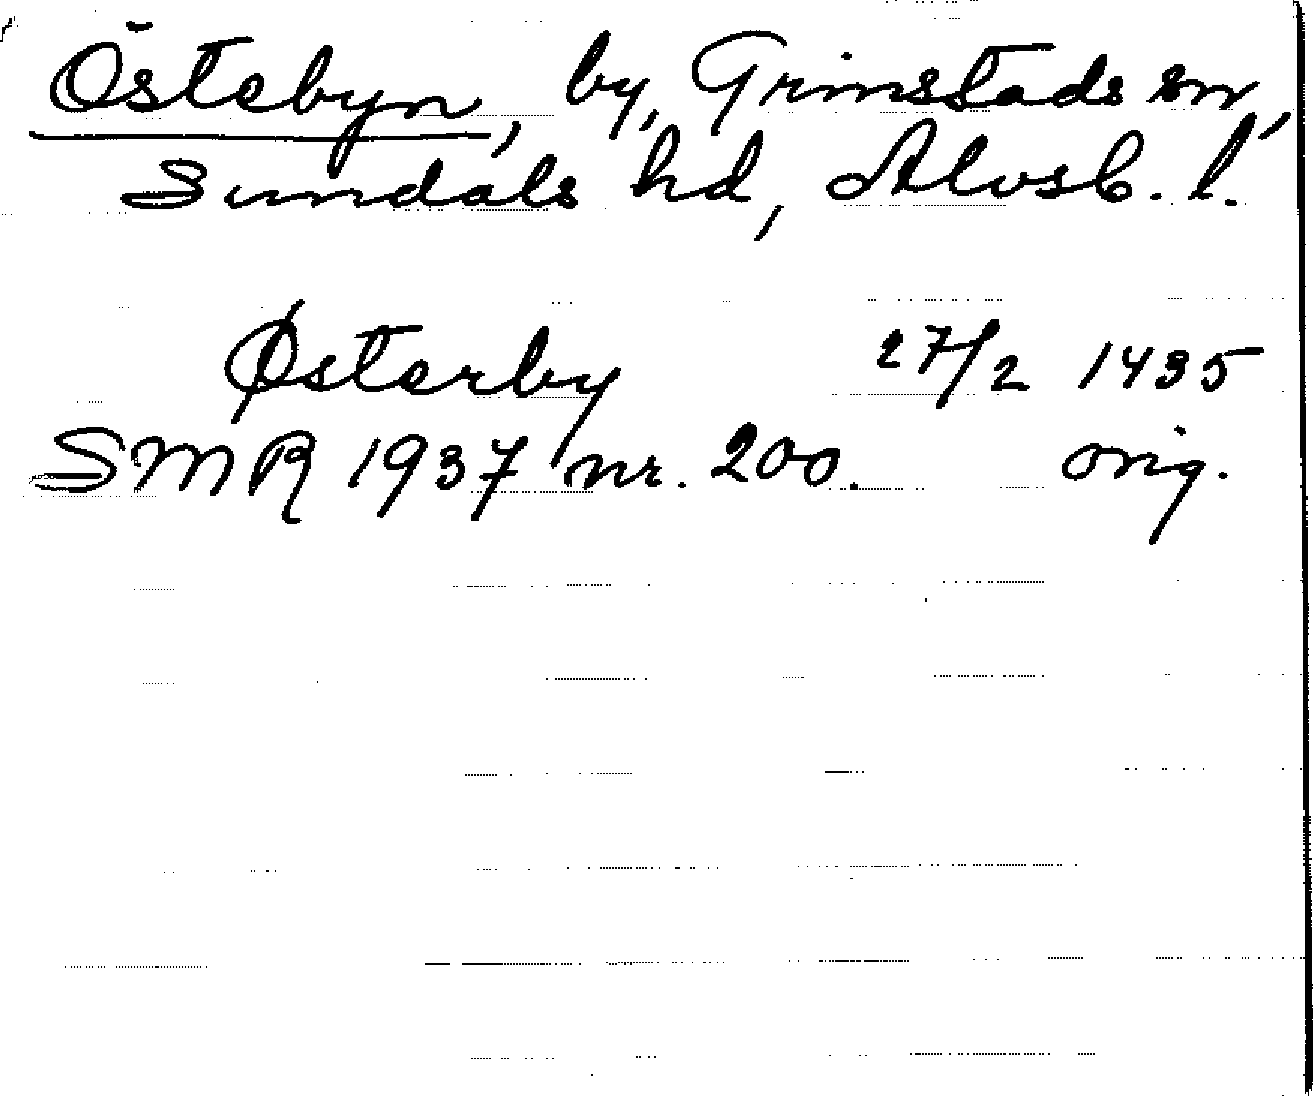 Östebyn, by, Grinstads sn,
Sundals hd, Älvsb. l.
Østerby 27/2 1435
SMR 1937 nr. 200. orig.